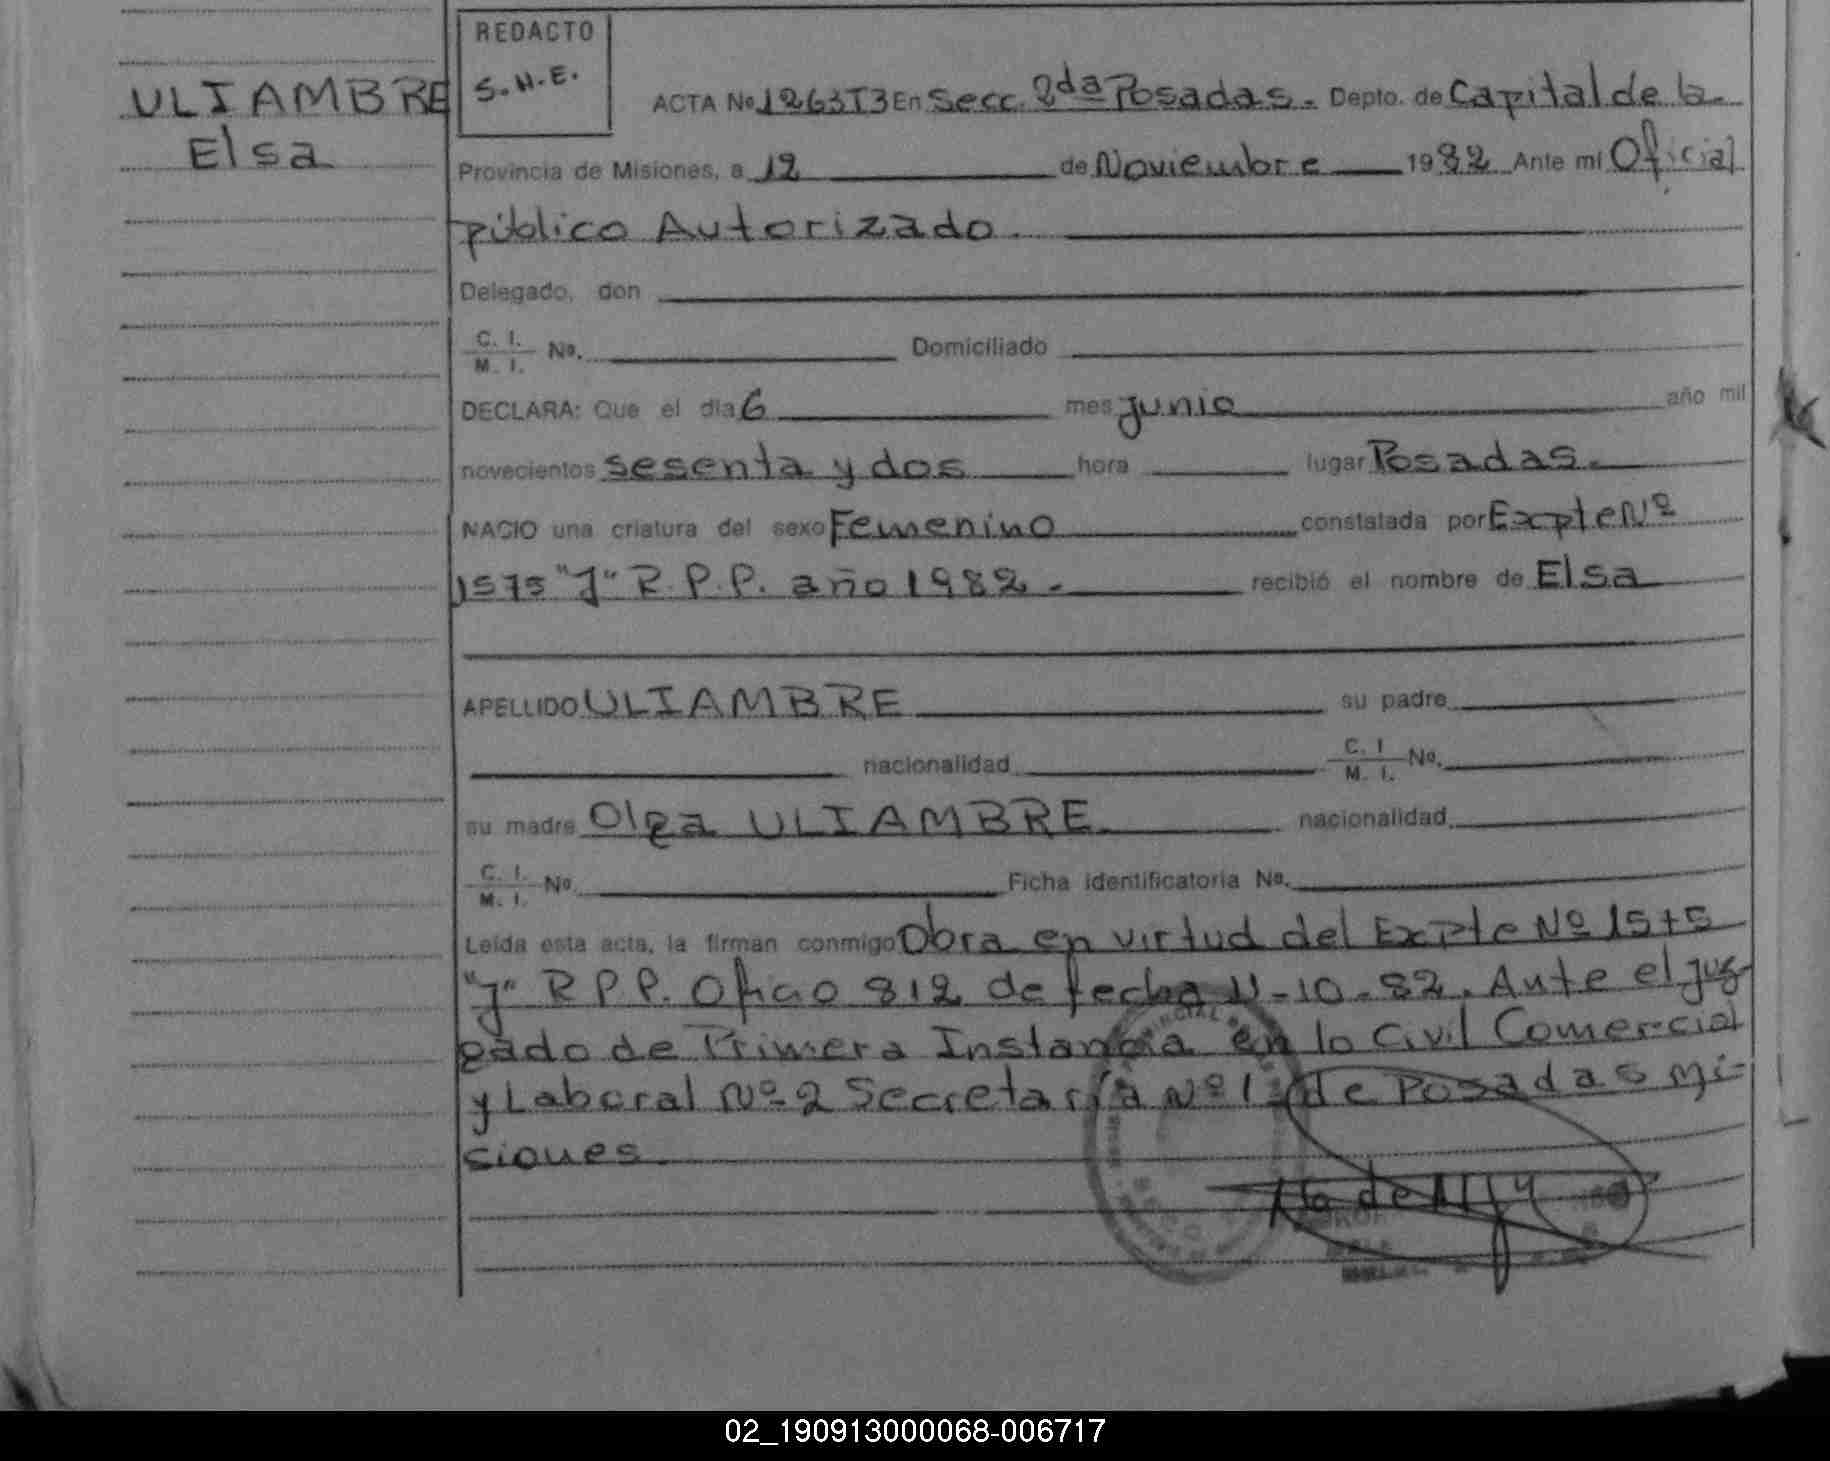 REDACTO
S.H.E.
ULIAMBRE
Elsa
ACTA No 1263T3 En Secc. 2da Posadas. Depto. de Capital de la
Provincia de Misiones, a 12 de Noviembre 1982 Ante mí Oficial
público Autorizado.
Delegado, don
C. I.
M. I. No. Domiciliado
DECLARA: Que el día 6 mes junio año mil
novecientos sesenta y dos hora lugar Posadas.
NACIO una criatura del sexo Femenino constatada por Expte Nº
1575 "J" R.P.P. año 1982. recibió el nombre de Elsa
APELLIDO ULIAMBRE su padre
nacionalidad C. I
M. I. No.
su madre Olga ULIAMBRE nacionalidad
C. I.
M. I. No. Ficha identificatoria No.
Leída esta acta, la firman conmigo Obra en virtud del Expte Nº 1575
"J" R P P. Oficio 812 de fecha 11-10-82. Ante el juz-
gado de Primera Instancia en lo Civil Comercial
y Laboral Nº 2 Secretaría Nº 1 de Posadas Mi-
siones
02_190913000068-006717